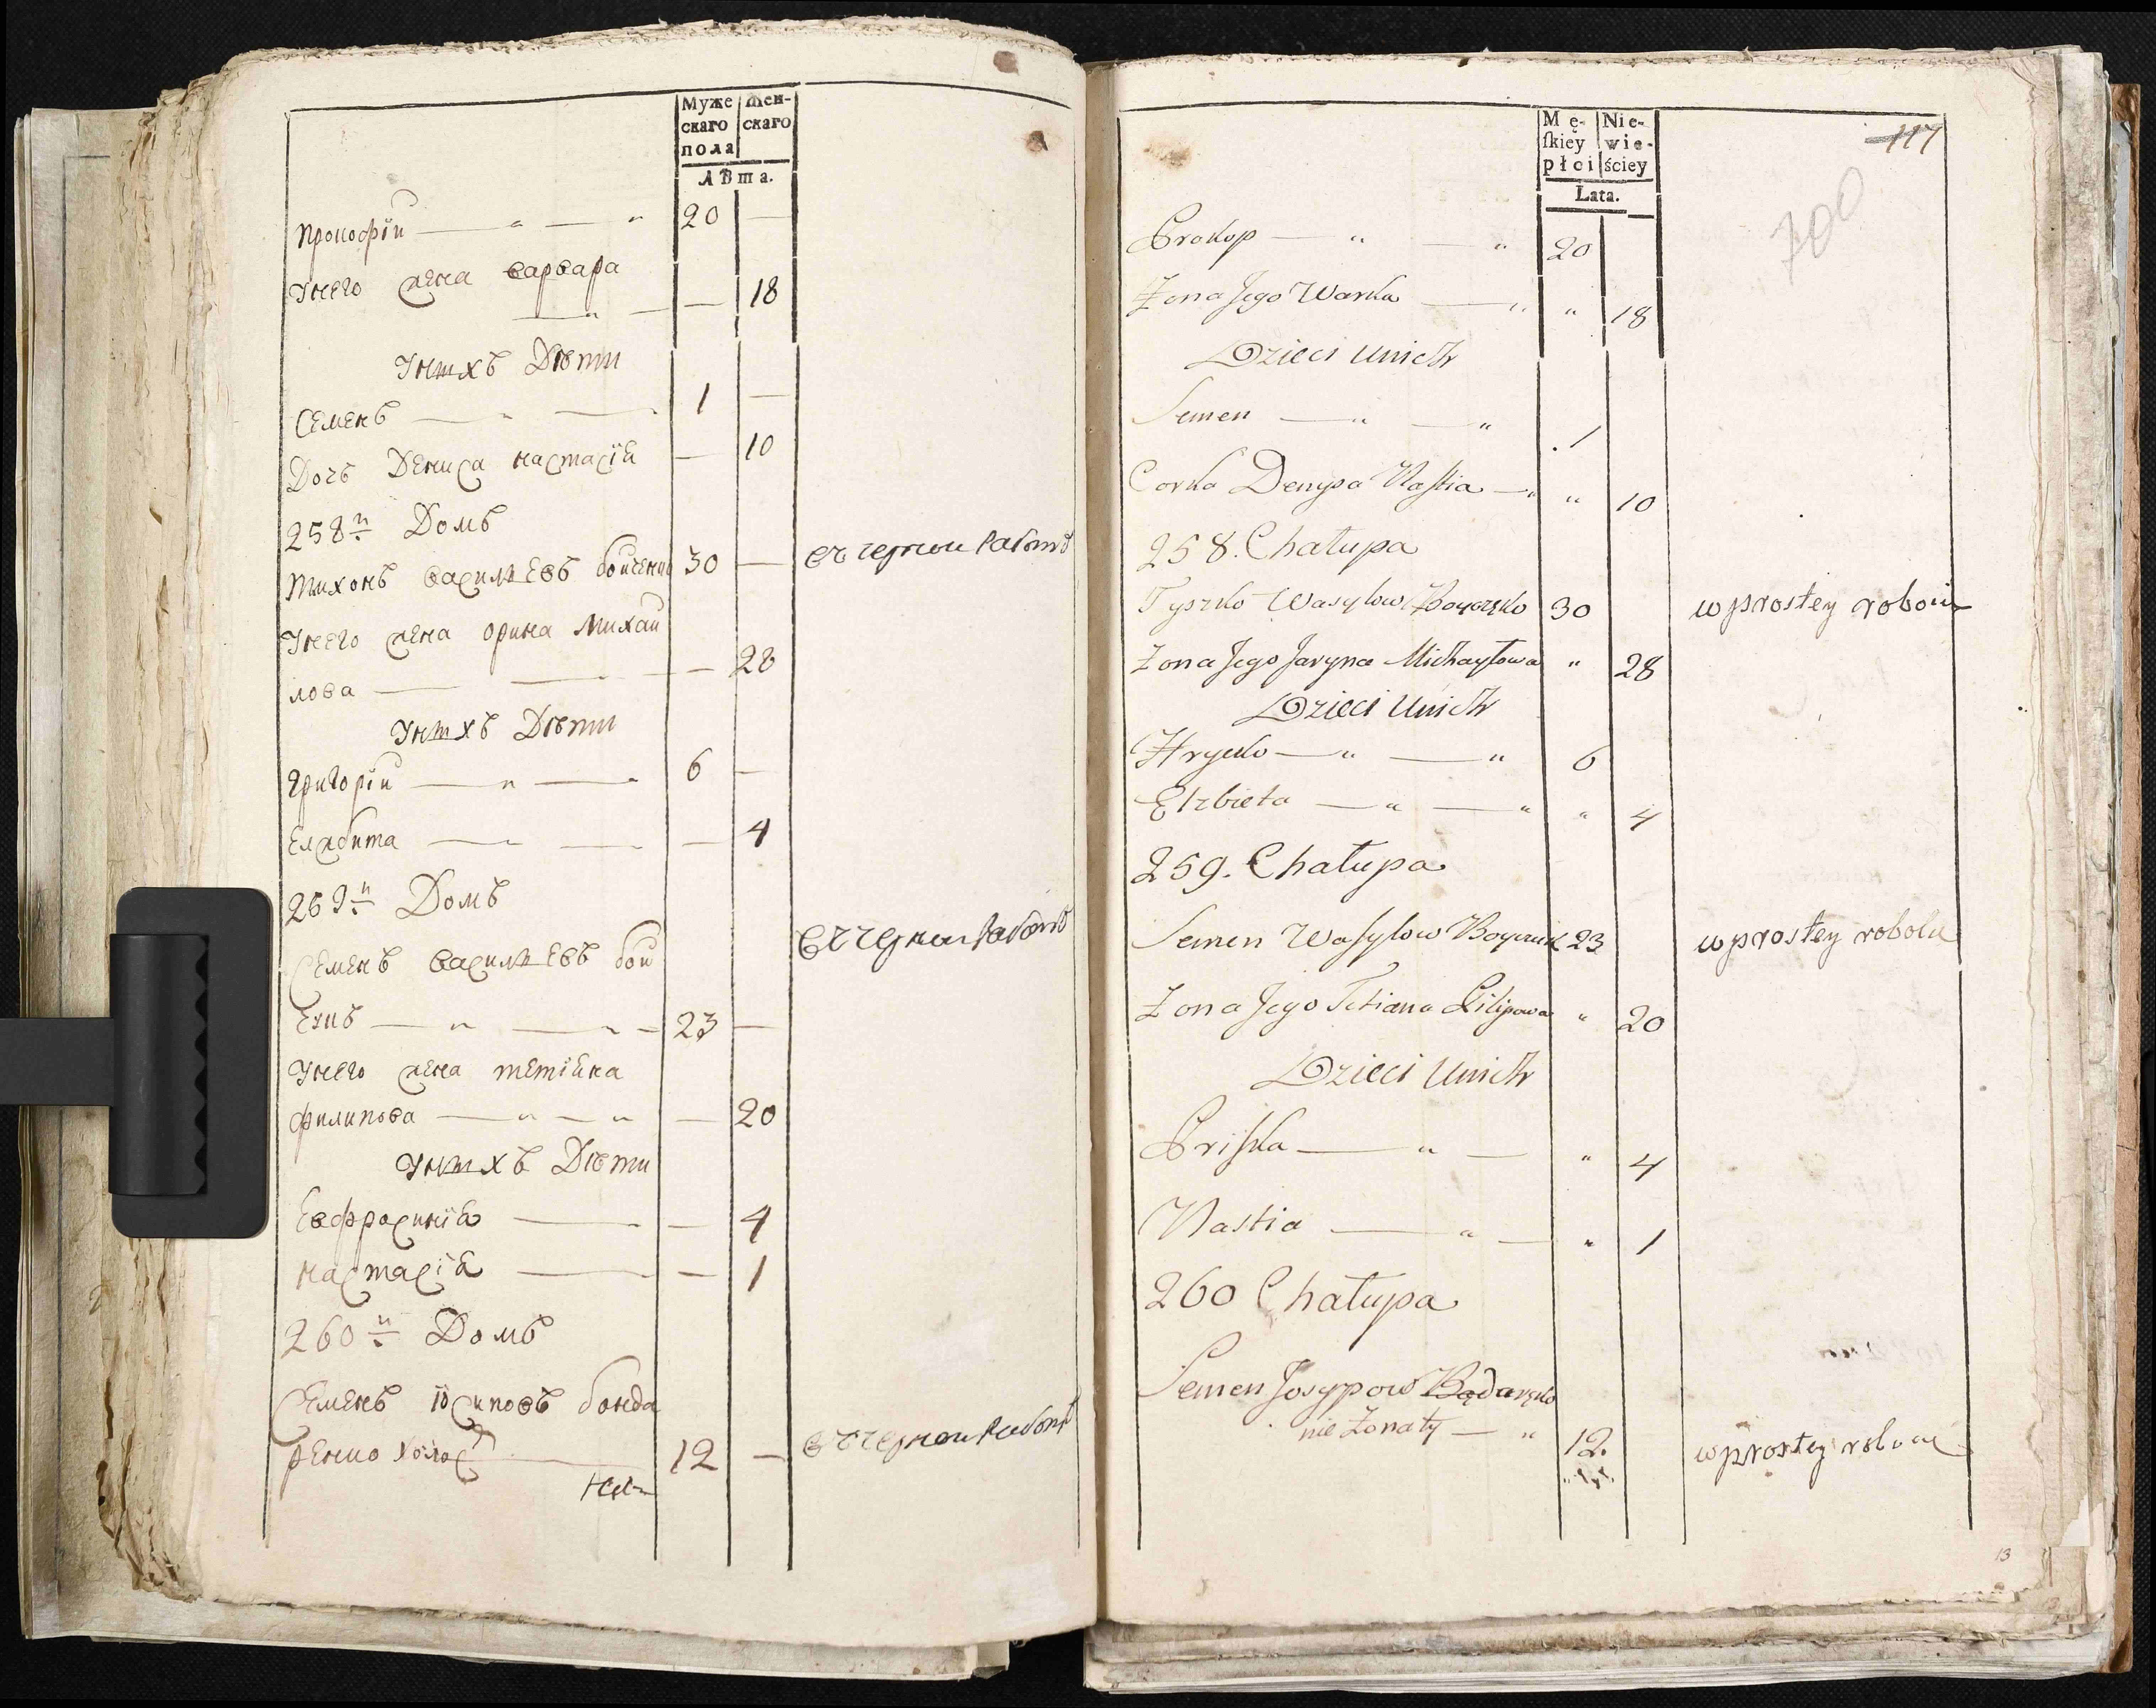 Муже Жен-
скаго скаго
пола
лѣта.
Прокофiй — „ — „ 20 —
Унего жена варвара
— „ — — 18
Унихъ Дѣти
Семенъ — „ — 1 —
Дочь Дениса настасiя — 10
258й Домъ
Тихонъ васильевъ бойченко 30 — въ черной работѣ
Унего жена орина Михай
лова — — — 28
Унихъ Дѣти
Григорiй — „ — „ 6 —
Елзбита — „ — — 4
259й Домъ
Семенъ васильевъ бой въ черной работѣ
— „ — „ — 23 —
Унего жена тетiяна
филипова — „ — „ — 20
Унихъ Дѣти
Евфросинiя — — 4
настасiя — — 1
260й Домъ
Семенъ юсиповъ бонда
ренко холос — 12 — въ черной работѣ
Mę- Nie-
ſkiey wie-
płci ściey
Lata.
117
700
Prokop — „ — „ 20
Żona Jego Warka — „ „ 18
Dzieci Unich
Semen — „ — „ 1
Corka Denysa Naſtia — „ „ 10
258. Chałupa
Tyszko Wasylow Boyczęko 30 w prostey roboci
Żona Jego Jaryna Michayłowa „ 28
Dzieci Unich
Hrycko — „ — „ 6
Elzbieta — „ — „ „ 4
259. Chałupa
Semen Waſylow 23 w prostey
Żona Jego Tetiana Pilipowa „ 20
Dzieci Unich
Priſka — „ — „ 4
Nastia — „ — „ 1
260 Chałupa
Semen Josypow Bądaręko
nie Żonaty — „ 12. w prostey
13